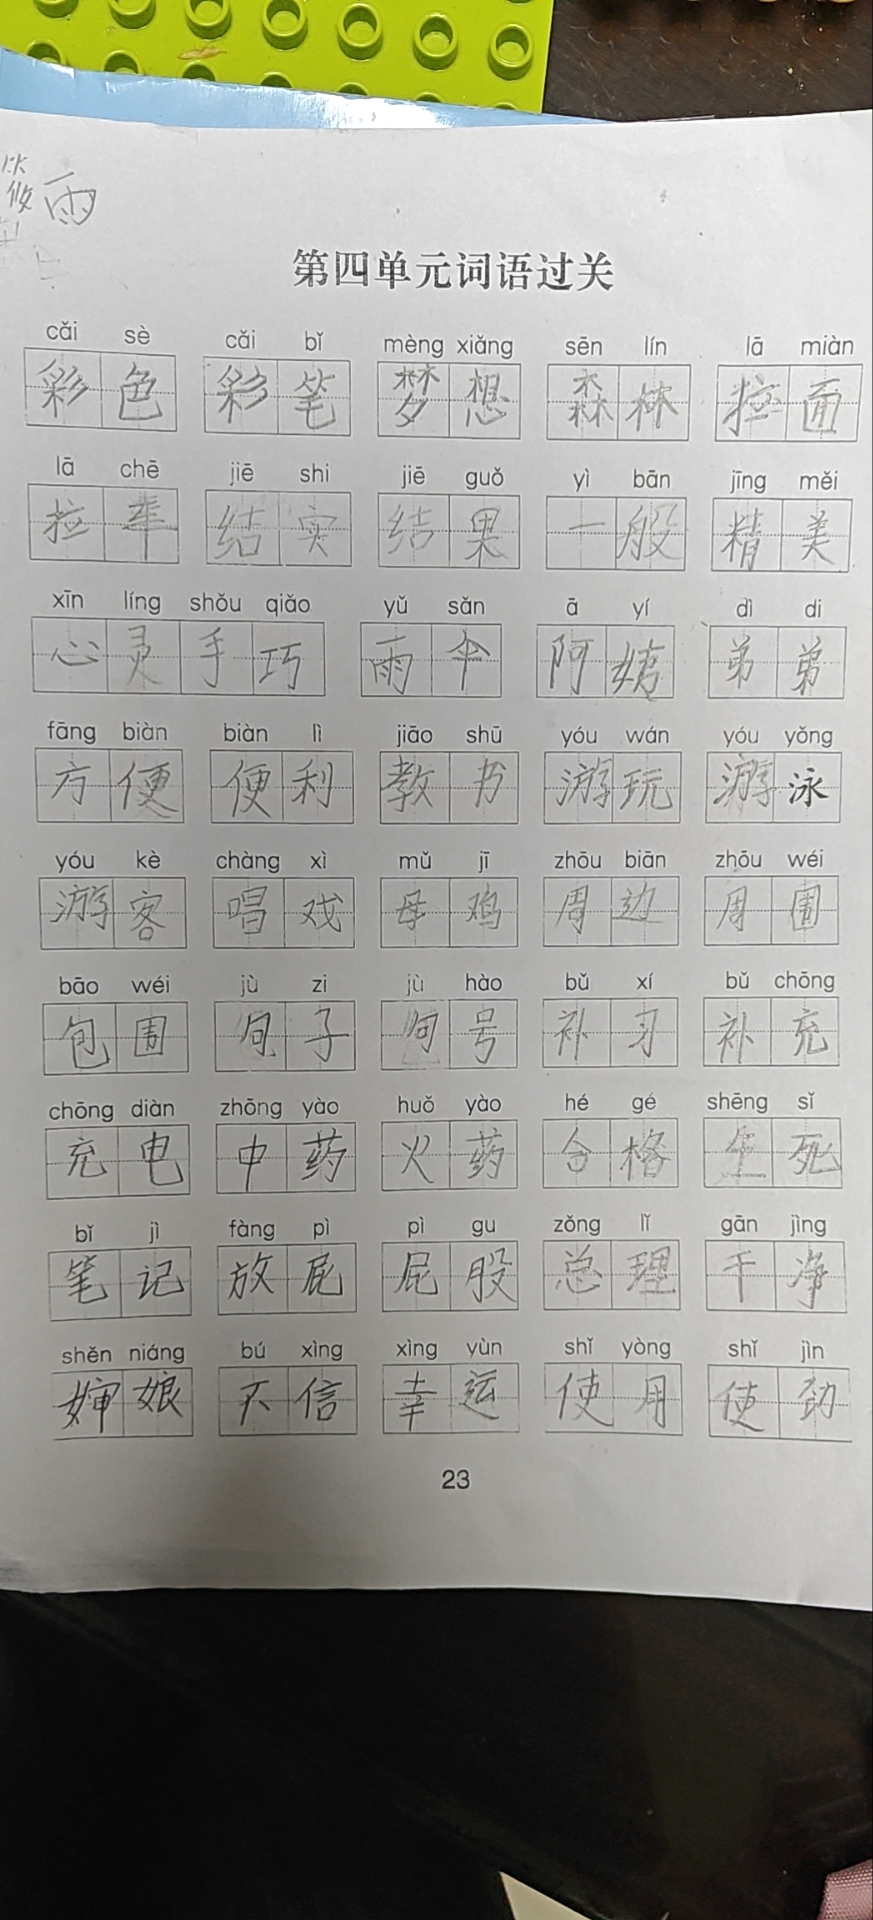 雨
第四单元词语过关
cǎi sè cǎi bǐ mèng xiǎng sēn lín lā miàn
彩色 彩笔 梦想 森林 拉面
lā chē jiē shi jiē guǒ yì bān jīng měi
拉车 结实 结果 一般 精美
xīn líng shǒu qiǎo yǔ sǎn ā yí dì di
心灵手巧 雨伞 阿姨 弟弟
fāng biàn biàn lì jiāo shū yóu wán yóu yǒng
方便 便利 教书 游玩 游泳
yóu kè chàng xì mǔ jī zhōu biān zhōu wéi
游客 唱戏 母鸡 周边 周围
bāo wéi jù zi jù hào bǔ xí bǔ chōng
包围 句子 句号 补习 补充
chōng diàn zhōng yào huǒ yào hé gé shēng sǐ
充电 中药 火药 合格 生死
bǐ jì fàng pì pì gu zǒng lǐ gān jìng
笔记 放屁 屁股 总理 干净
shěn niáng bú xìng xìng yùn shǐ yòng shǐ jìn
婶娘 不信 幸运 使用 使劲
23